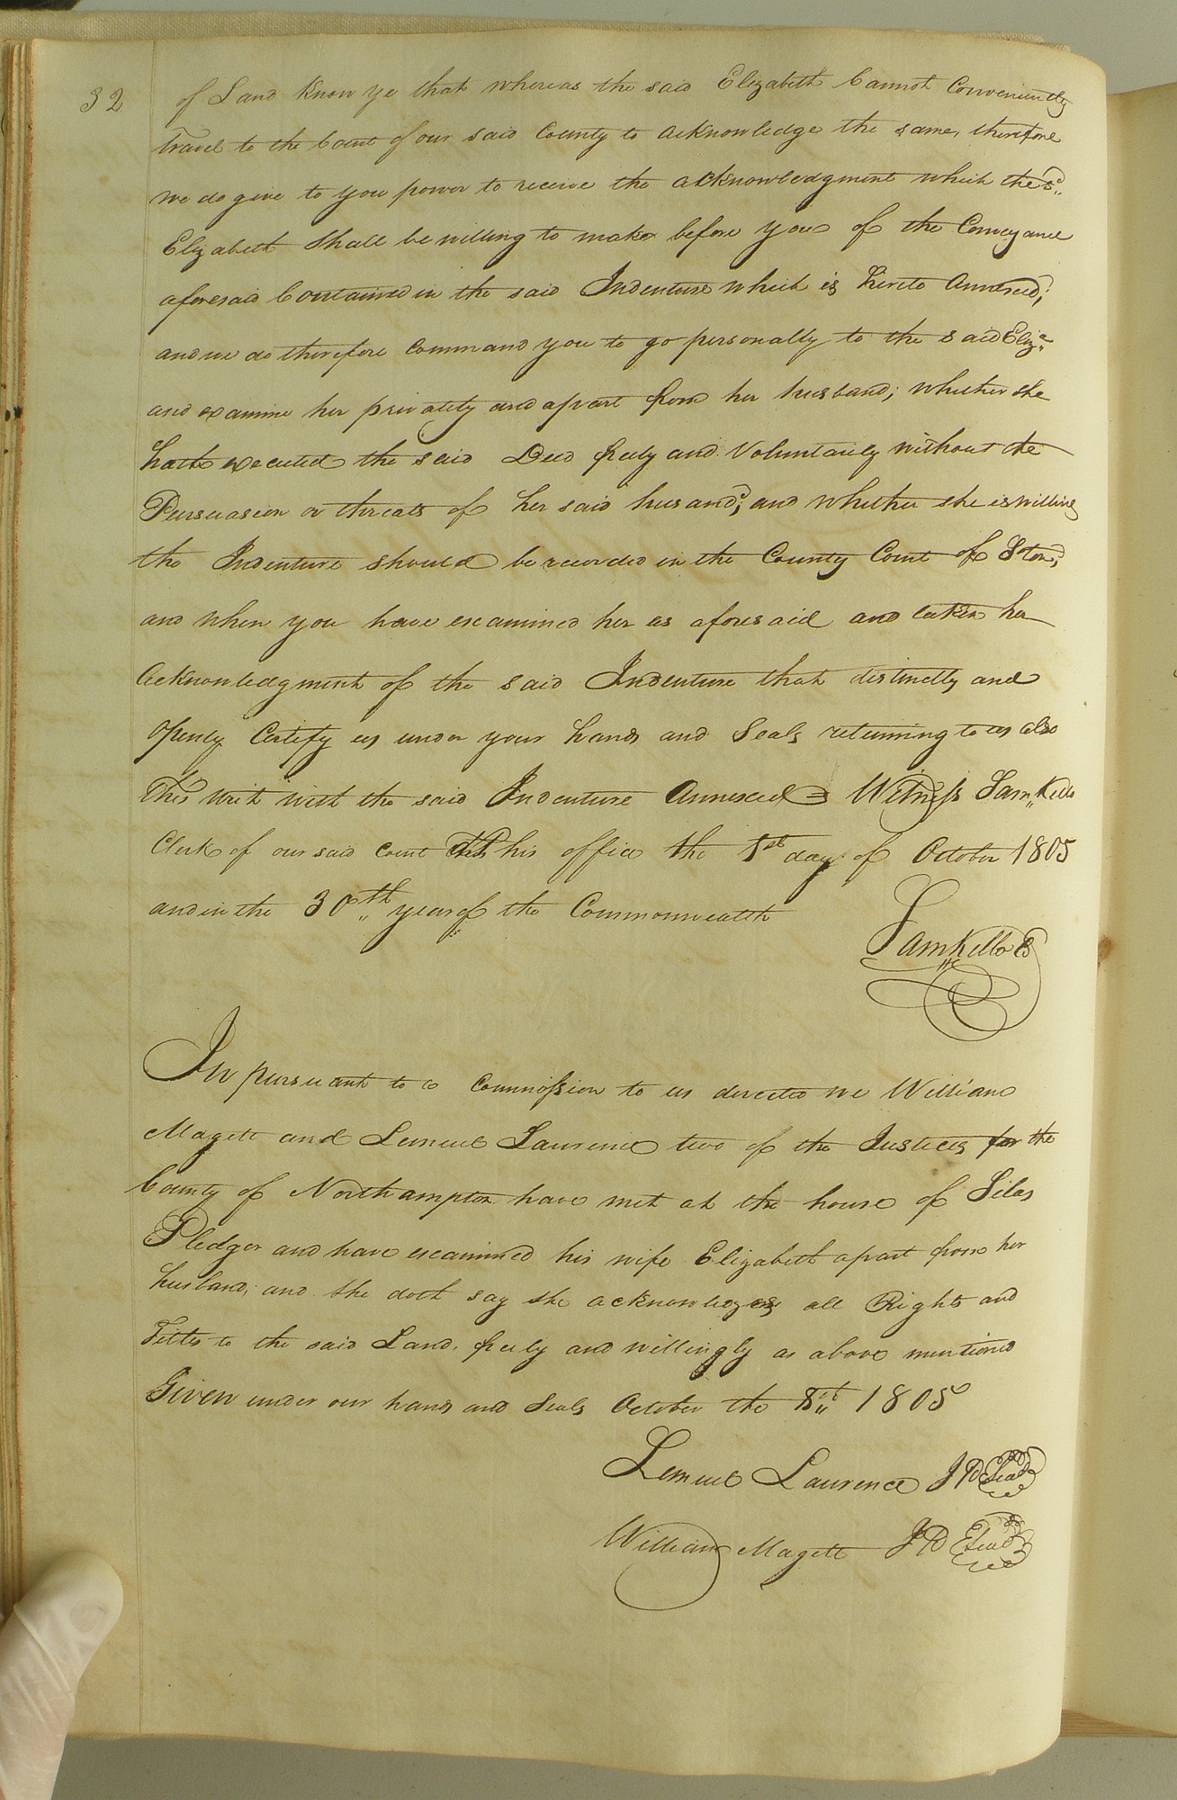 32
of Land Know ye that whereas the said Elizabeth Cannot Conveniently
Travel to the Court of our said County to acknowledge the same, therefore
we do give to you power to receive the acknowledgment which the sd
Elizabeth shall be willing to make before you of the Conveyance
aforesaid Contained in the said Indenture which is hereto Annexed;
and we do therefore Command you to go personally to the said Eliza
and examine her privately and apart from her husband; whether she
hath executed the said Deed freely and Voluntarily without the
Persuasion or threats of her said husand; and whether she is willing
the Indenture should be recorded in the County Court of Soton;
and when you have examined her as aforesaid and taken her
acknowledgment of the said Indenture that distinctly and
openly Certify us under your hands and Seals returning to us also
This writ with the said Indenture Annexed = Witness Saml Kello
Clerk of our said Court at his office the 1st day of October 1805
and in the 30th year of the Commonwealth
Saml Kello
In pursuant to a Commission to us directed we William
Magett and Lemuel Laurence two of the Justices for the
County of Northampton have met at the house of Silas
Pledger and have examined his wife Elizabeth apart from her
husband; and she doth say she acknowledges all Rights and
Titles to the said Land, freely and willingly as above mentioned
Given under our hands and Seals October the 8th 1805
Lemuel Laurence JP Seal
William Magett JP Seal